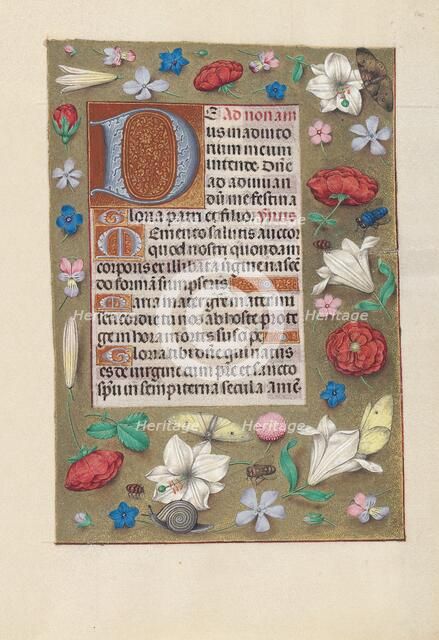 E Ad nonam
us in adiuto
rium meum
intende. Dñe
ad adiuuan
dū me festina
Gloria patri et filio. ymnus
Memento salutis auctor
quod nostri quondam
corporis ex illibata virgine nascē
do formam sumpseris
Maria mater gratie mater mi
sericordie tu nos ab hoste prote
ge in hora mortis suscipe
Gloria tibi dñe qui natus
es de virgine cum pr̄e et sancto
spū in sempiterna secula amē
Heritage Heritage
Heritage Heritage